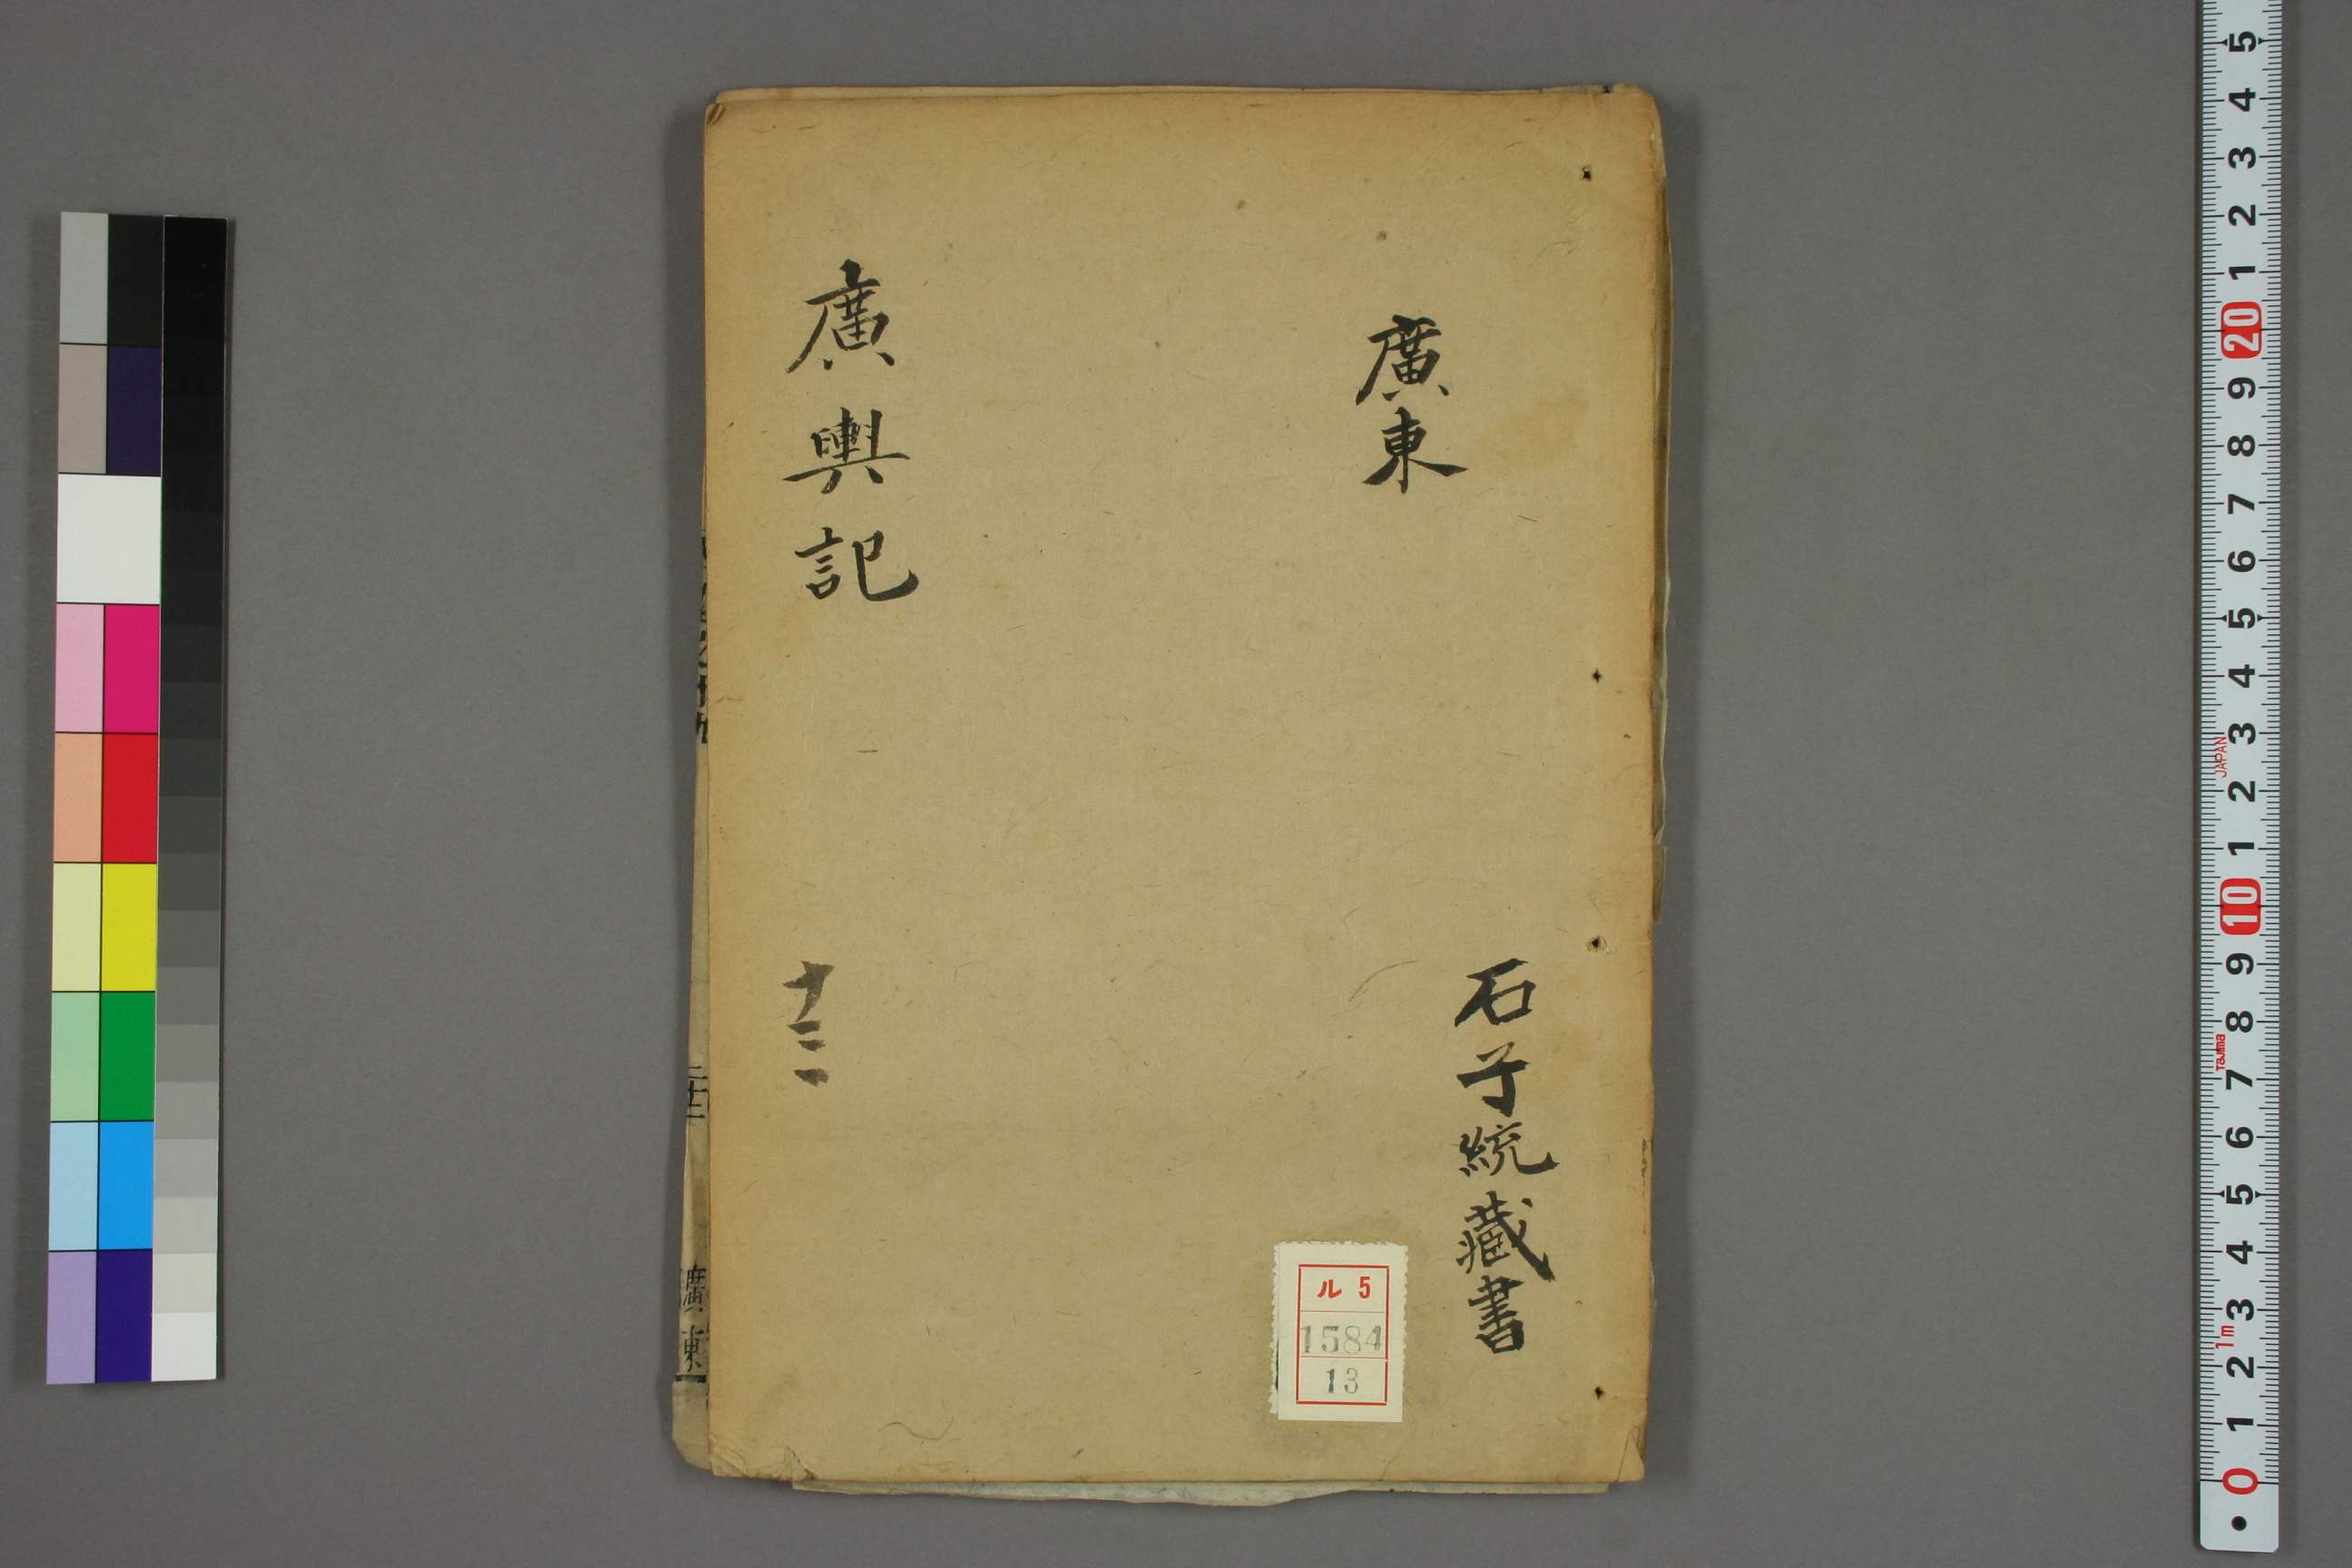 廣東
石子統藏書
廣輿記
十三
廣東
ル 5
1584
13
5
4
3
2
1
20
9
8
7
6
5
4
3
JAPAN
2
1
10
9
8
Tajima
7
6
5
4
3
1m
2
1
0